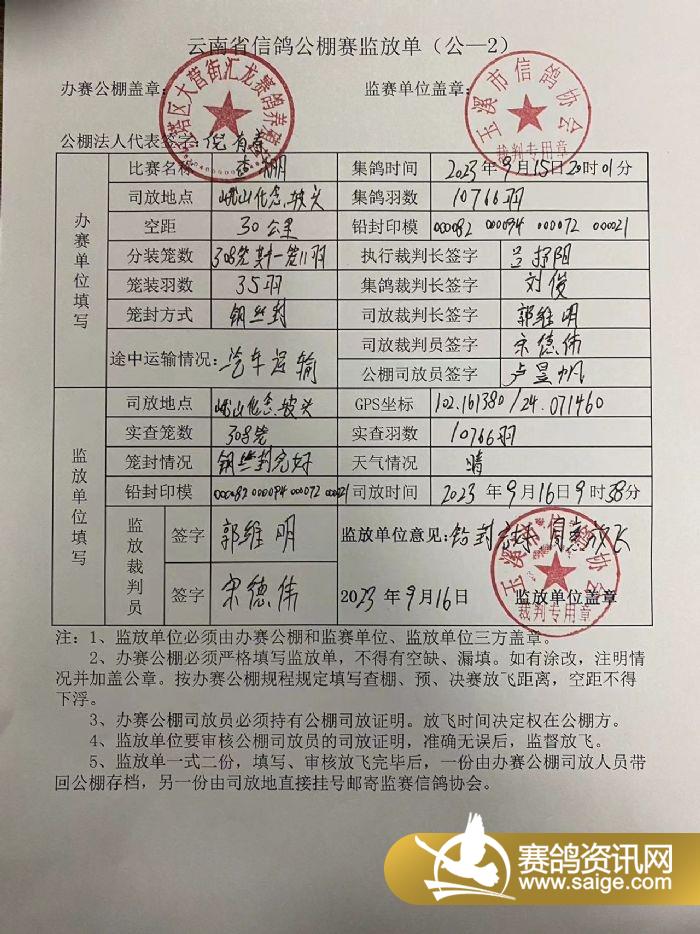 云南省信鸽公棚赛监放单（公—2）
办赛公棚盖章： 监赛单位盖章：
大营街汇龙赛鸽养殖
玉溪市信鸽协会
裁判专用章
公棚法人代表签字：倪有春
办赛单位填写
比赛名称 查棚 集鸽时间 2023年9月15日20时01分
司放地点 峨山化念坡头 集鸽羽数 10766羽
空距 30公里 铅封印模 000082 000094 000072 000021
分装笼数 308笼其中一笼11羽 执行裁判长签字
笼装羽数 35羽 集鸽裁判长签字 刘俊
笼封方式 钢丝封 司放裁判长签字 郭维明
途中运输情况：汽车运输 司放裁判员签字 宋德伟
公棚司放员签字 卢昱帆
监放单位填写
司放地点 峨山化念坡头 GPS坐标 102.161380/24.071460
实查笼数 308笼 实查羽数 10766羽
笼封情况 钢丝封完好 天气情况 晴
铅封印模 000082 000094 000072 000021 司放时间 2023年9月16日9时38分
监放裁判员 签字 郭维明 监放单位意见：铅封完好 同意放飞
签字 宋德伟 2023年9月16日 监放单位盖章
玉溪市信鸽协会
裁判专用章
注：1、监放单位必须由办赛公棚和监赛单位、监放单位三方盖章。
2、办赛公棚必须严格填写监放单，不得有空缺、漏填。如有涂改，注明情
况并加盖公章。按办赛公棚规程规定填写查棚、预、决赛放飞距离，空距不得
下浮。
3、办赛公棚司放员必须持有公棚司放证明。放飞时间决定权在公棚方。
4、监放单位要审核公棚司放员的司放证明，准确无误后，监督放飞。
5、监放单一式二份，填写、审核放飞完毕后，一份由办赛公棚司放人员带
回公棚存档，另一份由司放地直接挂号邮寄监赛信鸽协会。
赛鸽资讯网
www.saige.com